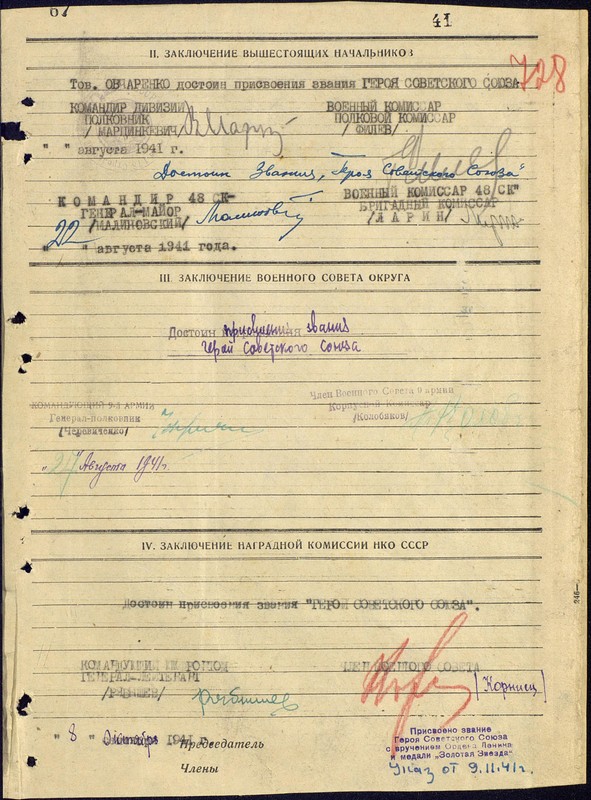 67
41
II. ЗАКЛЮЧЕНИЕ ВЫШЕСТОЯЩИХ НАЧАЛЬНИКОВ
728
Тов. ОВЧАРЕНКО достоин присвоения звания ГЕРОЯ СОВЕТСКОГО СОЮЗА
КОМАНДИР ДИВИЗИИ ВОЕННЫЙ КОМИССАР
ПОЛКОВНИК ПОЛКОВОЙ КОМИССАР
/МАРЦИНКЕВИЧ/ /ФИЛЕВ/
" " августа 1941 г.
Достоин Звания, "Героя Советского Союза"
КОМАНДИР 48 СК- ВОЕННЫЙ КОМИССАР 48/СК"
ГЕНЕРАЛ-МАЙОР БРИГАДНЫЙ КОМИССАР
/МАЛИНОВСКИЙ/ /ЛАРИН/
"22" августа 1941 года.
III. ЗАКЛЮЧЕНИЕ ВОЕННОГО СОВЕТА ОКРУГА
Достоин присвоения звания
Герой Советского Союза
КОМАНДУЮЩИЙ 9-й АРМИИ Член Военного Совета 9 армии
Генерал-полковник Корпусной Комиссар
/Черевиченко/ /Колобяков/
"27" Августа 1941г.
IV. ЗАКЛЮЧЕНИЕ НАГРАДНОЙ КОМИССИИ НКО СССР
Достоин присвоения звания "ГЕРОЙ СОВЕТСКОГО СОЮЗА".
КОМАНДУЮЩИЙ ЮЖ ФРОНТОМ ЧЛЕН ВОЕННОГО СОВЕТА
ГЕНЕРАЛ-ЛЕЙТЕНАНТ
/РЯБЫШЕВ/ Рябышев [Корниец]
"8" Октябрь 1941 г.
Председатель
Члены
Присвоено звание
Героя Советского Союза
с вручением Ордена Ленина
и медали „Золотая Звезда"
Указ от 9.11.41г.